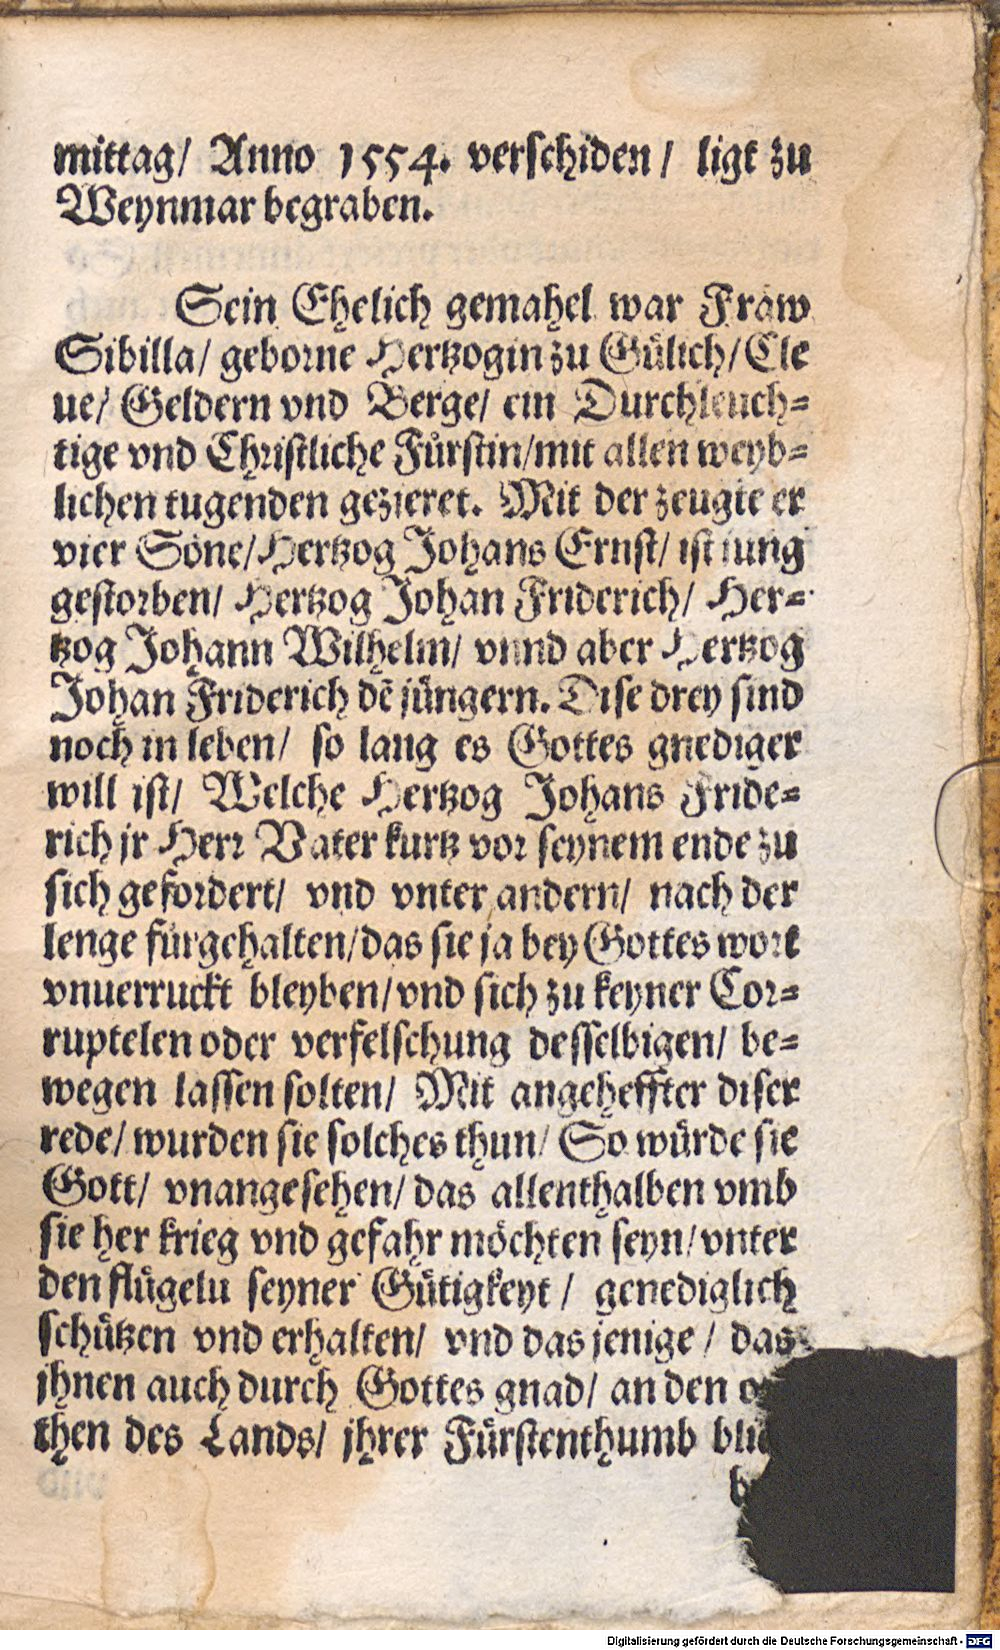 mittag/ Anno 1554. verschiden/ ligt zu
Weynmar begraben.
Sein Ehelich gemahel war Fraw
Sibilla/ geborne Hertzogin zu Gülich/ Cle
ue/ Geldern vnd Berge/ ein Durchleuch=
tige vnd Christliche Fürstin/ mit allen weyb=
lichen tugenden gezieret. Mit der zeugte er
vier Söne/ Hertzog Johans Ernst/ ist jung
gestorben/ Hertzog Johan Friderich/ Her=
tzog Johann Wilhelm/ vnnd aber Hertzog
Johan Friderich dẽ jüngern. Dise drey sind
noch in leben/ so lang es Gottes gnediger
will ist/ Welche Hertzog Johans Fride=
rich jr Herr Vater kurtz vor seynem ende zu
sich gefordert/ vnd vnter andern/ nach der
lenge fürgehalten/ das sie ja bey Gottes wort
vnuerruckt bleyben/ vnd sich zu keyner Cor=
ruptelen oder verfelschung desselbigen/ be=
wegen lassen solten/ Mit angeheffter diser
rede/ wurden sie solches thun/ So würde sie
Gott/ vnangesehen/ das allenthalben vmb
sie her krieg vnd gefahr möchten seyn/ vnter
den flügelu seyner Gütigkeyt/ genediglich
schützen vnd erhalten/ vnd das jenige/ das
jhnen auch durch Gottes gnad/ an den
then des Lands/ jhrer Fürstenthumb
Digitalisierung gefördert durch die Deutsche Forschungsgemeinschaft - DFG